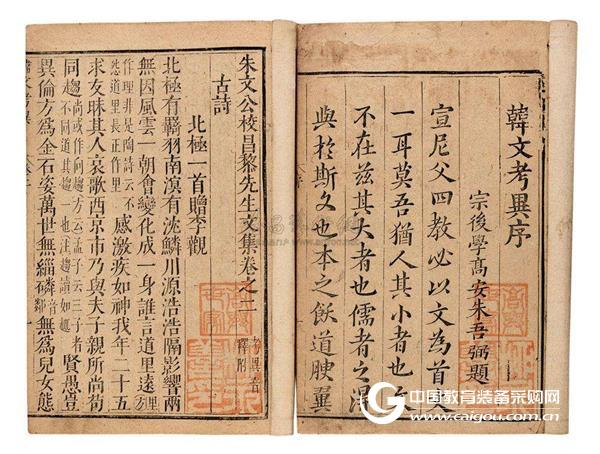 韓文考異序
宗後學高安朱吾弼題
宣尼父四教必以文為首文
一耳莫吾猶人其小者也文
不在茲其大者也儒者之淂
與於斯文也本之飫道腴翼
朱文公校昌黎先生文集卷之二 考異音釋附
古詩
北極一首贈李觀
北極有羈羽南溟有沈鱗川源浩浩隔影響兩
無因風雲一朝會變化成一身誰言道里遠里方
作理非是陶詩云不怨道里長正作里感激疾如神我年二十五
求友昧其人哀歌西京市乃與夫子親所尚苟
同趨賢愚豈
異倫方為金石姿萬世無緇磷音鄰無為兒女態
中国教育装备采购网
www.caigou.com.cn